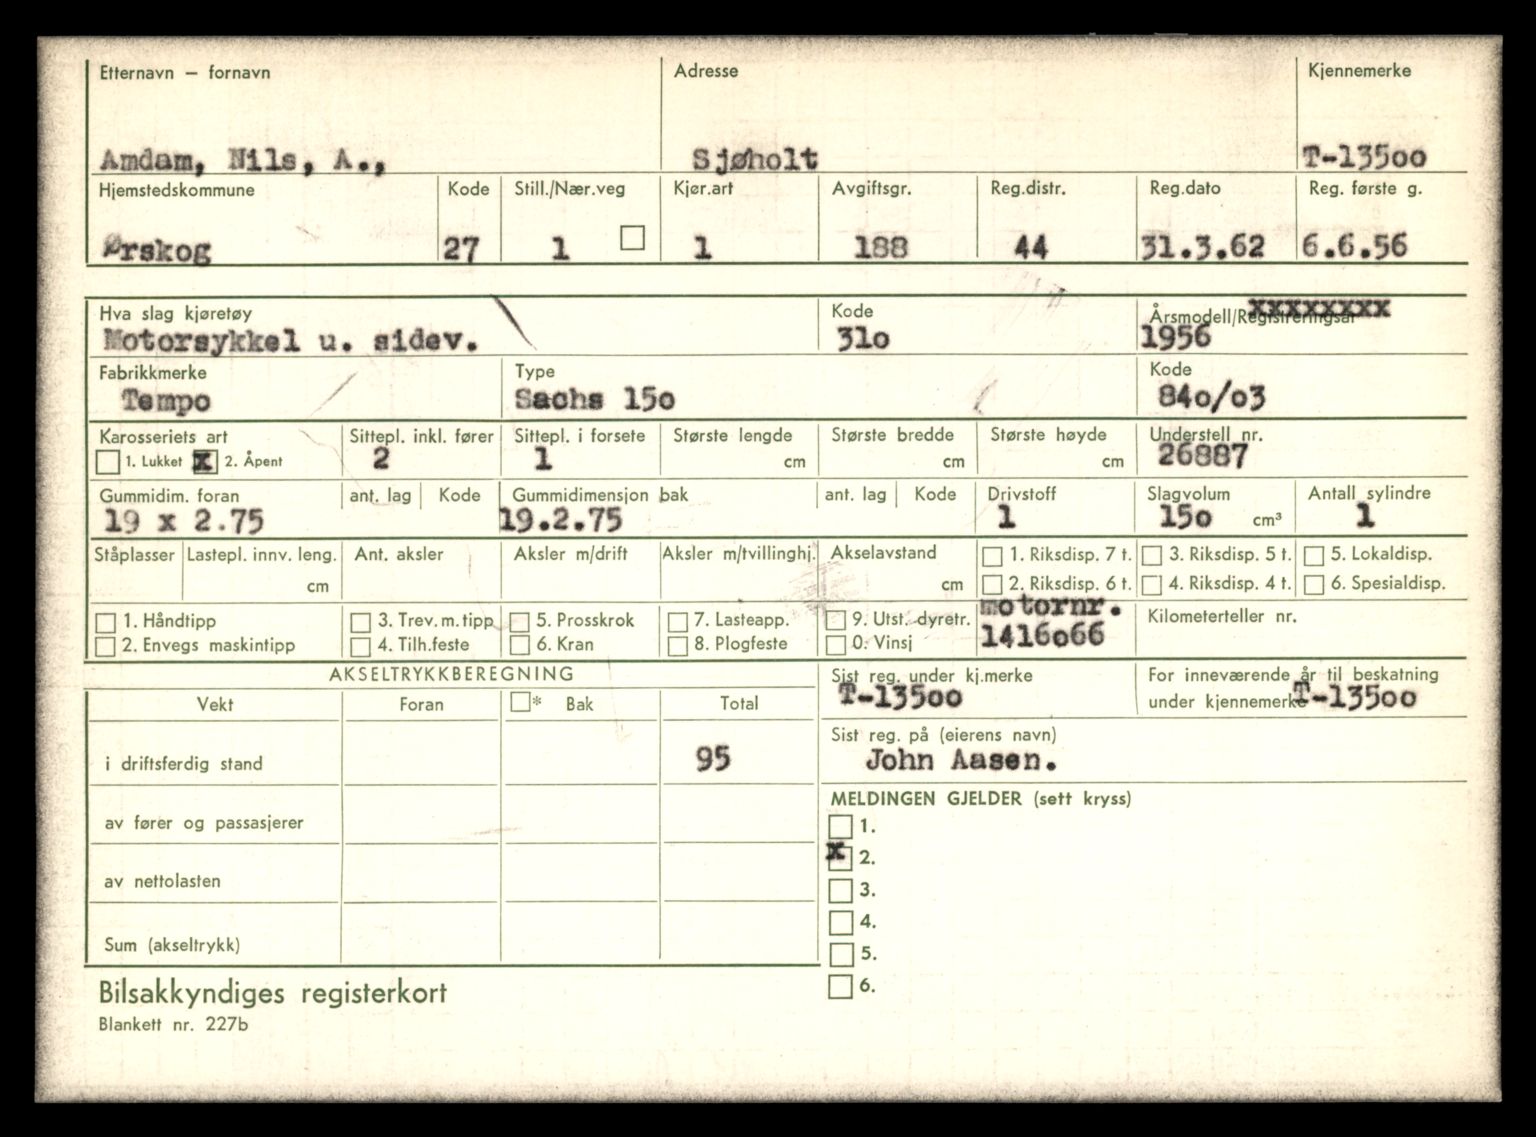 Etternavn – fornavn Adresse Kjennemerke
Amdam, Nils, A., Sjøholt T-135oo
Hjemstedskommune Kode Still./Nær.veg Kjør.art Avgiftsgr. Reg.distr. Reg.dato Reg. første g.
Ørskog 27 1 1 188 44 31.3.62 6.6.56
Hva slag kjøretøy Kode Årsmodell/Registreringsår xxxxxxxx
Motorsykkel u. sidev. 31o 1956
Fabrikkmerke Type Kode
Tempo Sachs 15o 84o/o3
Karosseriets art Sittepl. inkl. fører Sittepl. i forsete Største lengde Største bredde Største høyde Understell nr.
1. Lukket x 2. Åpent 2 1 cm cm cm 26887
Gummidim. foran ant. lag Kode Gummidimensjon bak ant. lag Kode Drivstoff Slagvolum Antall sylindre
19 x 2.75 19.2.75 1 15o cm³ 1
Ståplasser Lastepl. innv. leng. Ant. aksler Aksler m/drift Aksler m/tvillinghj. Akselavstand 1. Riksdisp. 7 t. 3. Riksdisp. 5 t. 5. Lokaldisp.
cm cm 2. Riksdisp. 6 t. 4. Riksdisp. 4 t. 6. Spesialdisp.
1. Håndtipp 3. Trev. m. tipp 5. Prosskrok 7. Lasteapp. 9. Utst. dyretr. motornr. Kilometerteller nr.
2. Envegs maskintipp 4. Tilh.feste 6. Kran 8. Plogfeste 0. Vinsj 1416o66
AKSELTRYKKBEREGNING Sist reg. under kj.merke For inneværende år til beskatning
Vekt Foran * Bak Total T-135oo under kjennemerke T-135oo
Sist reg. på (eierens navn)
i driftsferdig stand 95 John Aasen.
MELDINGEN GJELDER (sett kryss)
av fører og passasjerer 1.
x 2.
av nettolasten 3.
4.
Sum (akseltrykk) 5.
6.
Bilsakkyndiges registerkort
Blankett nr. 227b